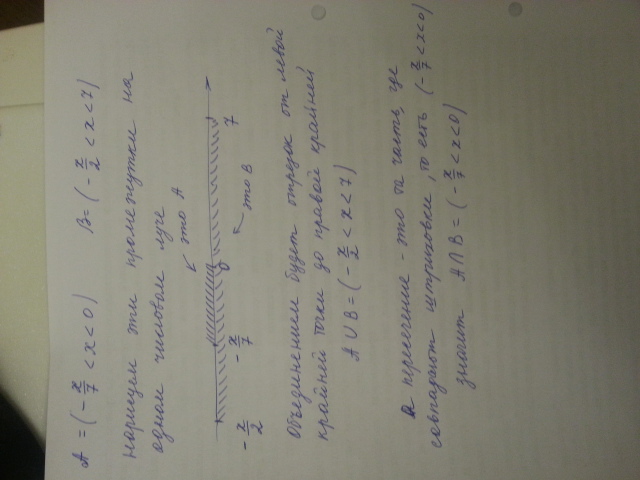 A = (- x/7 < x < 0) B = (- x/2 < x < 7)
нарисуем эти промежутки на
одном числовом луче
это A
- x/2 - x/7 0 7
это B
Объединением будет отрезок от левой
крайней точки до правой крайней
A ∪ B = (- x/2 < x < 7)
а пересечение - это та часть, где
совпадают штриховки, то есть (- x/7 < x < 0)
значит A ∩ B = (- x/7 < x < 0)